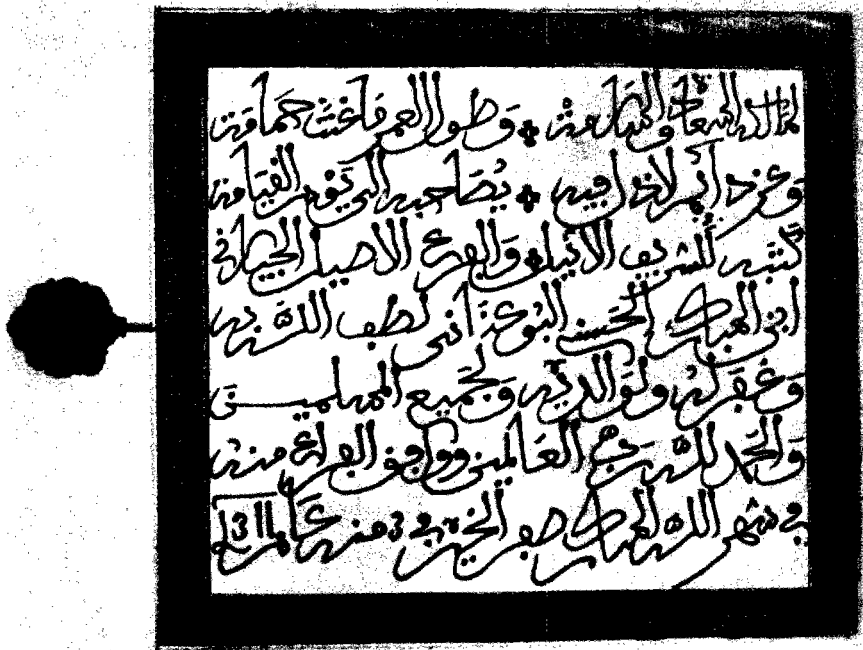 لمالكه السعادة والسلامة * وطول العمر ما غنت حمامة
وعز دايم لا ذل فيه * يصاحبه الى يوم القيامة
كتبه الشريف الاثيل والفرع الاصيل الجيلاني
ابن المبارك الحسني البوعناني لطف الله به
وغفر له ولوالديه ولجميع المسلمين
والحمد لله رب العالمين ووافق الفراغ منه
في شهر الله المبارك صفر الخير في 3 منه عام